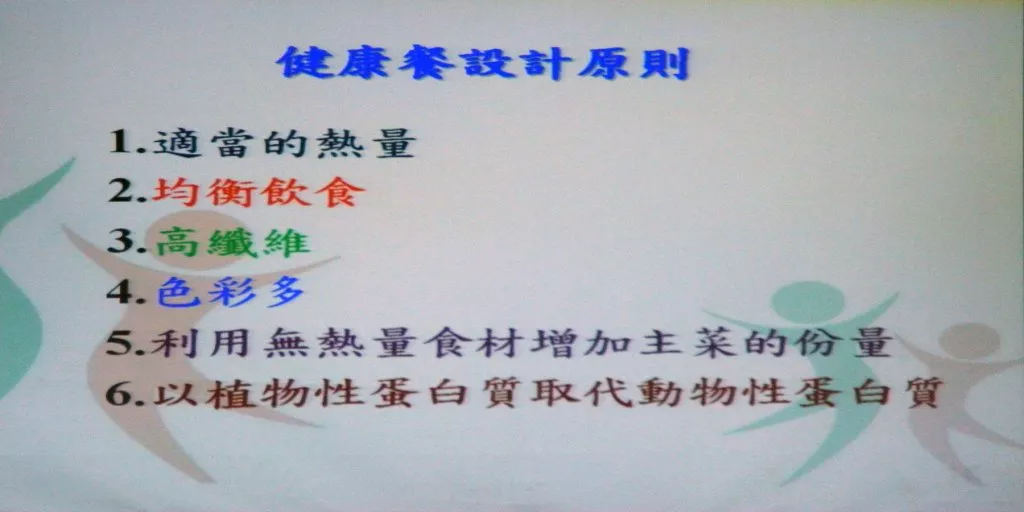 健康餐設計原則
1.適當的熱量
2.均衡飲食
3.高纖維
4.色彩多
5.利用無熱量食材增加主菜的份量
6.以植物性蛋白質取代動物性蛋白質